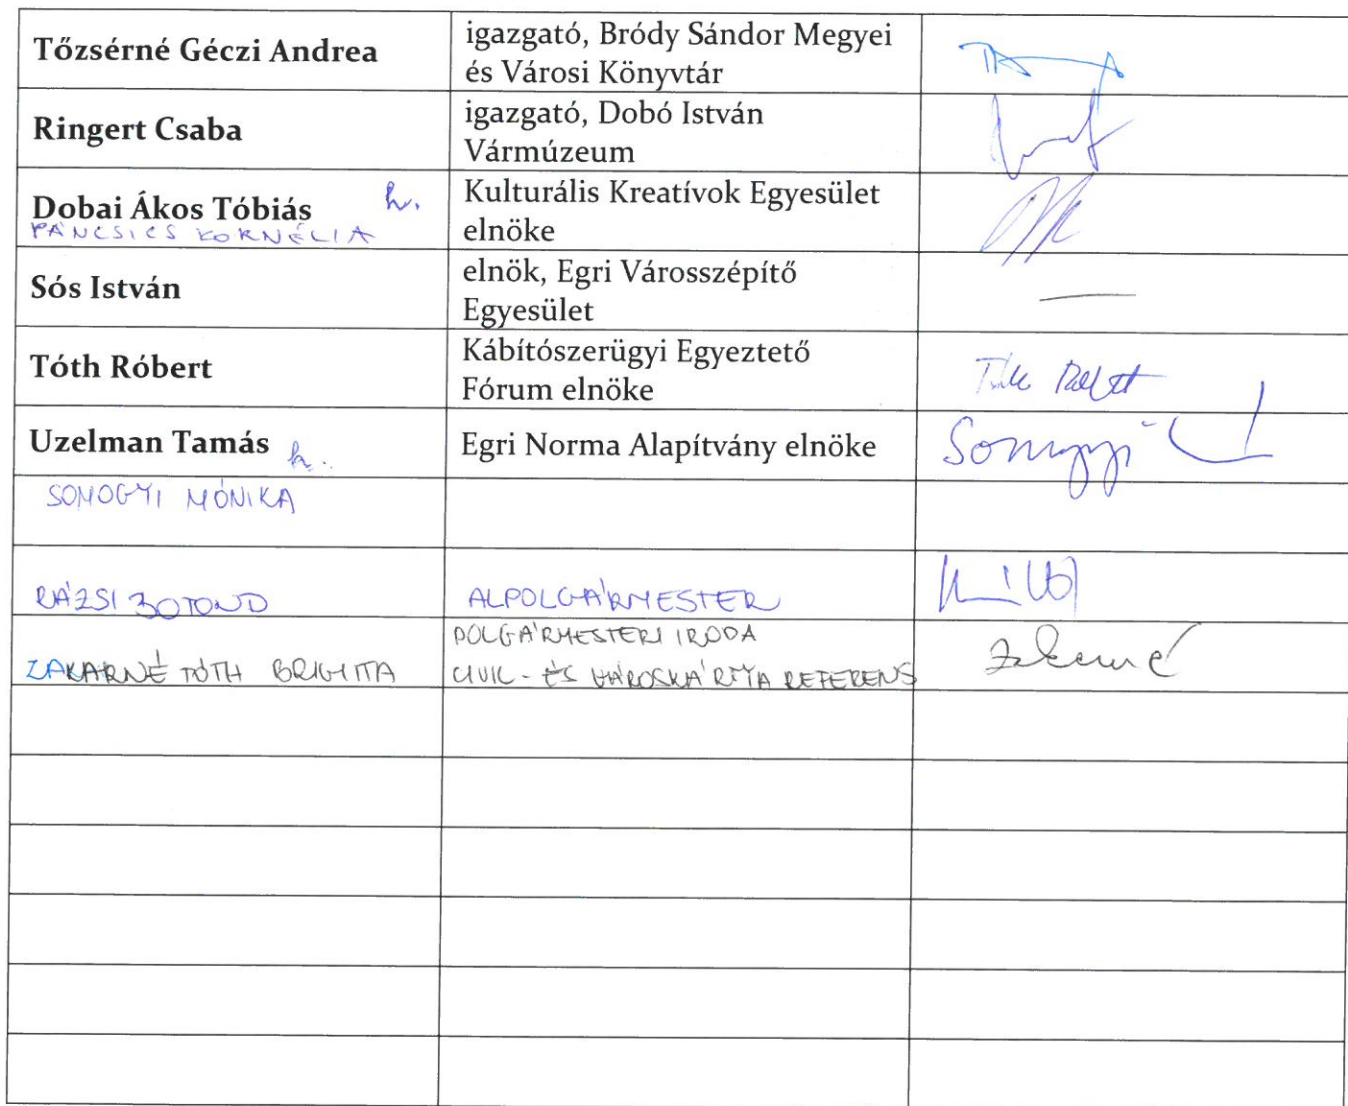 Tőzsérné Géczi Andrea
igazgató, Bródy Sándor Megyei
és Városi Könyvtár
Ringert Csaba
igazgató, Dobó István
Vármúzeum
Dobai Ákos Tóbiás h.
PÁNCSICS KORNÉLIA
Kulturális Kreatívok Egyesület
elnöke
Sós István
elnök, Egri Városszépítő
Egyesület
—
Tóth Róbert
Kábítószerügyi Egyeztető
Fórum elnöke
Uzelman Tamás h.
Egri Norma Alapítvány elnöke
Somogyi
SOMOGYI MÓNIKA
RÁZSI BOTOND
ALPOLGÁRMESTER
ZAKARNÉ TÓTH BRIGITTA
POLGÁRMESTERI IRODA
CIVIL- ÉS VÁROSKÁRTYA REFERENS